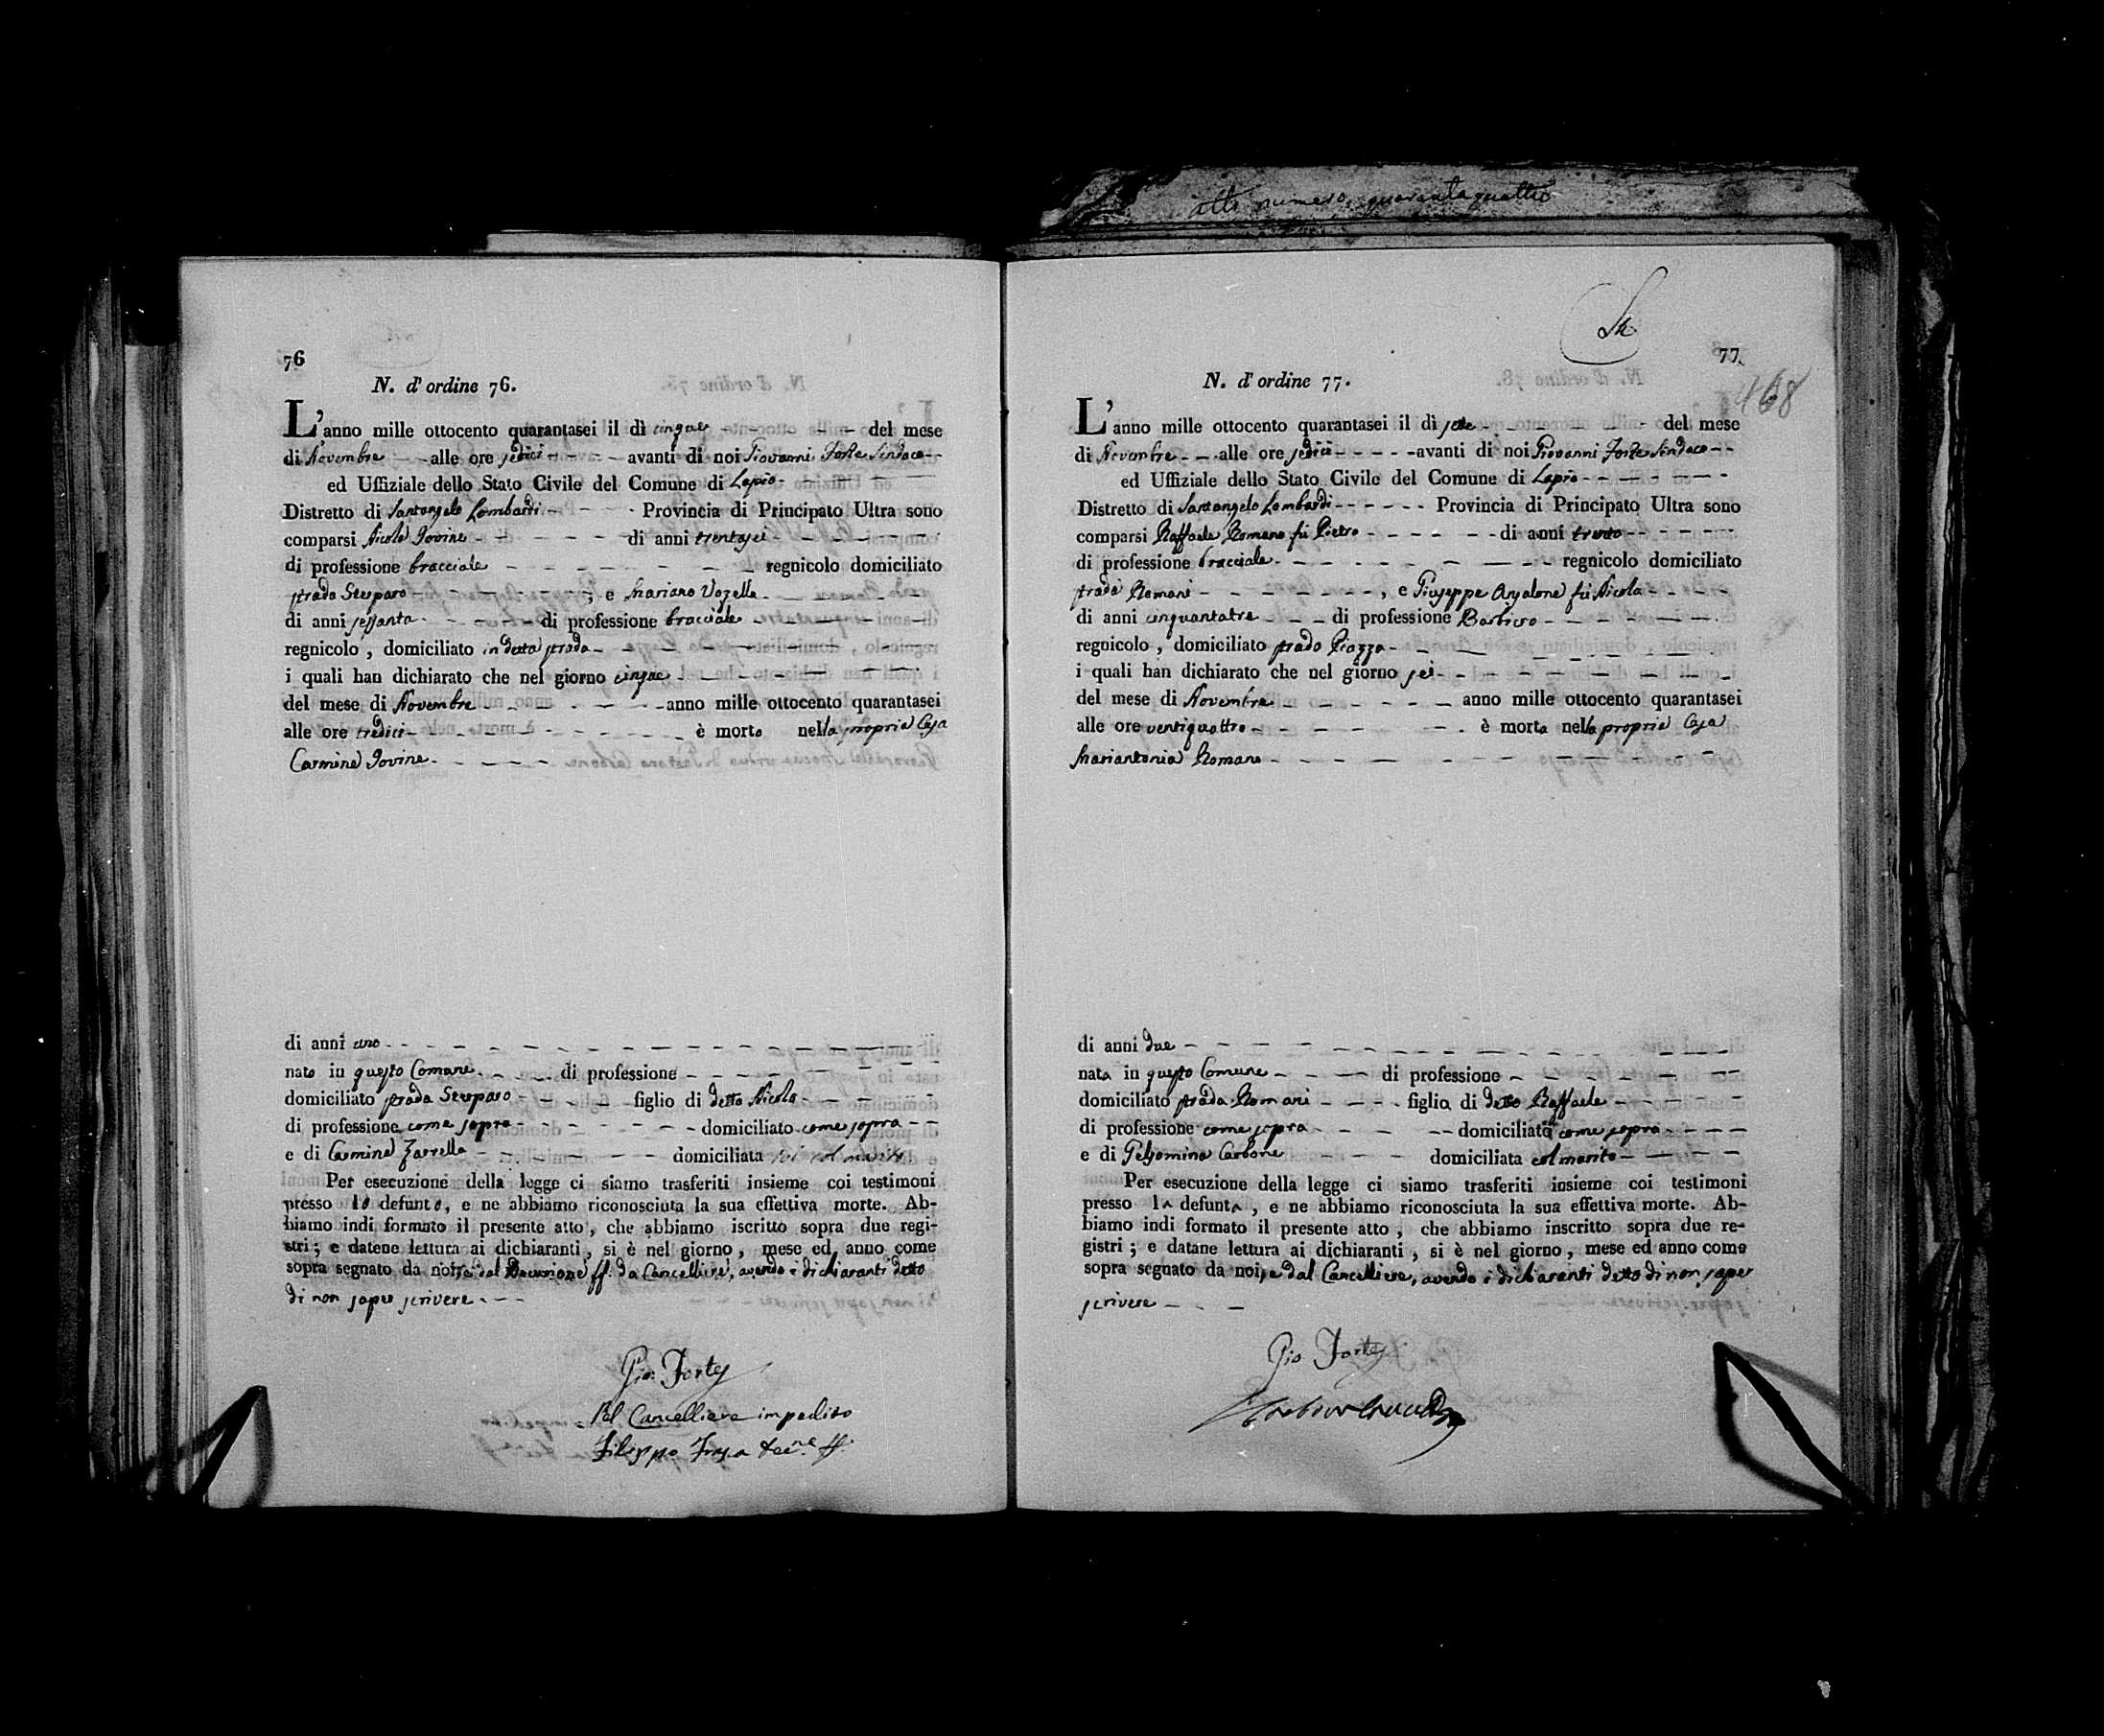 atto numero quarantaquattro
76
N. d'ordine 76.
L'anno mille ottocento quarantasei il dì cinque del mese
di Novembre alle ore sedici avanti di noi Giovanni Forte Sindaco
ed Uffiziale dello Stato Civile del Comune di Lapio
Distretto di Santangelo Lombardi Provincia di Principato Ultra sono
comparsi Nicola Iovine di anni trentasei
di professione bracciale regnicolo domiciliato
strada , e Mariano Vozella
di anni sessanta di professione bracciale
regnicolo, domiciliato in detta strada
i quali han dichiarato che nel giorno cinque
del mese di Novembre anno mille ottocento quarantasei
alle ore tredici è morto nella propria Casa
Carmine Iovine
di anni uno
nato in questo Comune di professione
domiciliato strada figlio di detto Nicola
di professione come sopra domiciliato come sopra
e di Carmina Zarrella domiciliata col marito
Per esecuzione della legge ci siamo trasferiti insieme coi testimoni
presso lo defunto, e ne abbiamo riconosciuta la sua effettiva morte. Ab-
biamo indi formato il presente atto, che abbiamo iscritto sopra due regi-
stri; e datene lettura ai dichiaranti, si è nel giorno, mese ed anno come
sopra segnato da noi, e dal Decurione ff. da Cancelliere, avendo i dichiaranti detto
di non saper scrivere
Gio: Forte
Pel Cancelliere impedito
Filippo ff.
77
N. d'ordine 77.
468
L'anno mille ottocento quarantasei il dì sette del mese
di Novembre alle ore sedici avanti di noi Giovanni Forte Sindaco
ed Uffiziale dello Stato Civile del Comune di Lapio
Distretto di Santangelo Lombardi Provincia di Principato Ultra sono
comparsi Raffaele Romano fu Pietro di anni trenta
di professione bracciale regnicolo domiciliato
strada Romani , e Giuseppe Anzalone fu Nicola
di anni cinquantatre di professione Barbiero
regnicolo, domiciliato strada Piazza
i quali han dichiarato che nel giorno sei
del mese di Novembre anno mille ottocento quarantasei
alle ore ventiquattro è morta nella propria Casa
Mariantonia Romano
di anni due
nata in questo Comune di professione
domiciliato strada Romani figlia di detto Raffaele
di professione come sopra domiciliato come sopra
e di Gelsomina Carbone domiciliata col marito
Per esecuzione della legge ci siamo trasferiti insieme coi testimoni
presso la defunta, e ne abbiamo riconosciuta la sua effettiva morte. Ab-
biamo indi formato il presente atto, che abbiamo inscritto sopra due re-
gistri; e datane lettura ai dichiaranti, si è nel giorno, mese ed anno come
sopra segnato da noi, e dal Cancelliere, avendo i dichiaranti detto di non saper
scrivere
Gio Forte